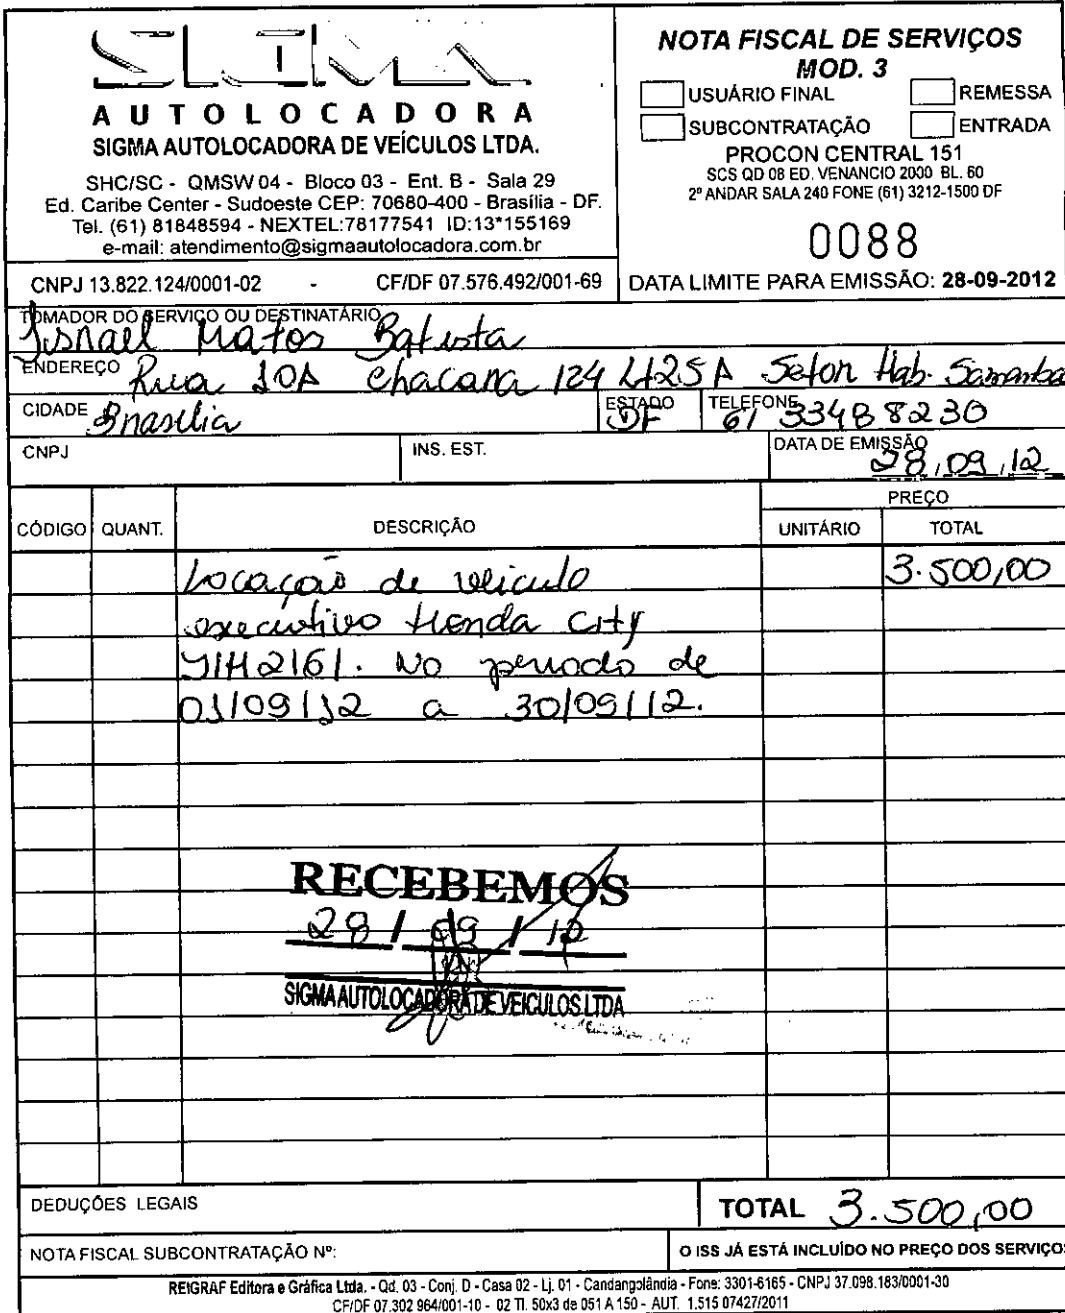 SIGMA
AUTOLOCADORA
SIGMA AUTOLOCADORA DE VEÍCULOS LTDA.
SHC/SC - QMSW 04 - Bloco 03 - Ent. B - Sala 29
Ed. Caribe Center - Sudoeste CEP: 70680-400 - Brasília - DF.
Tel. (61) 81848594 - NEXTEL:78177541 ID:13*155169
e-mail: atendimento@sigmaautolocadora.com.br
CNPJ 13.822.124/0001-02 - CF/DF 07.576.492/001-69
NOTA FISCAL DE SERVIÇOS
MOD. 3
USUÁRIO FINAL REMESSA
SUBCONTRATAÇÃO ENTRADA
PROCON CENTRAL 151
SCS QD 08 ED. VENANCIO 2000 BL. 60
2º ANDAR SALA 240 FONE (61) 3212-1500 DF
0088
DATA LIMITE PARA EMISSÃO: 28-09-2012
TOMADOR DO SERVIÇO OU DESTINATÁRIO
Israel Matos Batista
ENDEREÇO Rua 10A Chacara 124 Lt25A Setor Hab. Samamba
CIDADE Brasília ESTADO DF TELEFONE 61 33488230
CNPJ INS. EST. DATA DE EMISSÃO 28,09,12
CÓDIGO QUANT. DESCRIÇÃO PREÇO
UNITÁRIO TOTAL
Locação de veiculo 3.500,00
executivo Honda City
JIH2161. No periodo de
01/09/12 a 30/09/12.
RECEBEMOS
28/09/12
SIGMA AUTOLOCADORA DE VEICULOS LTDA
DEDUÇÕES LEGAIS TOTAL 3.500,00
NOTA FISCAL SUBCONTRATAÇÃO Nº: O ISS JÁ ESTÁ INCLUÍDO NO PREÇO DOS SERVIÇOS
REIGRAF Editora e Gráfica Ltda. - Qd. 03 - Conj. D - Casa 02 - Lj. 01 - Candangolândia - Fone: 3301-6165 - CNPJ 37.098.183/0001-30
CF/DF 07.302 964/001-10 - 02 Tl. 50x3 de 051 A 150 - AUT. 1.515 07427/2011